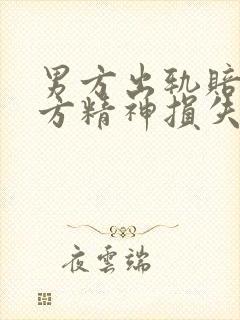 男方出轨赔
方精神损失
夜雲端